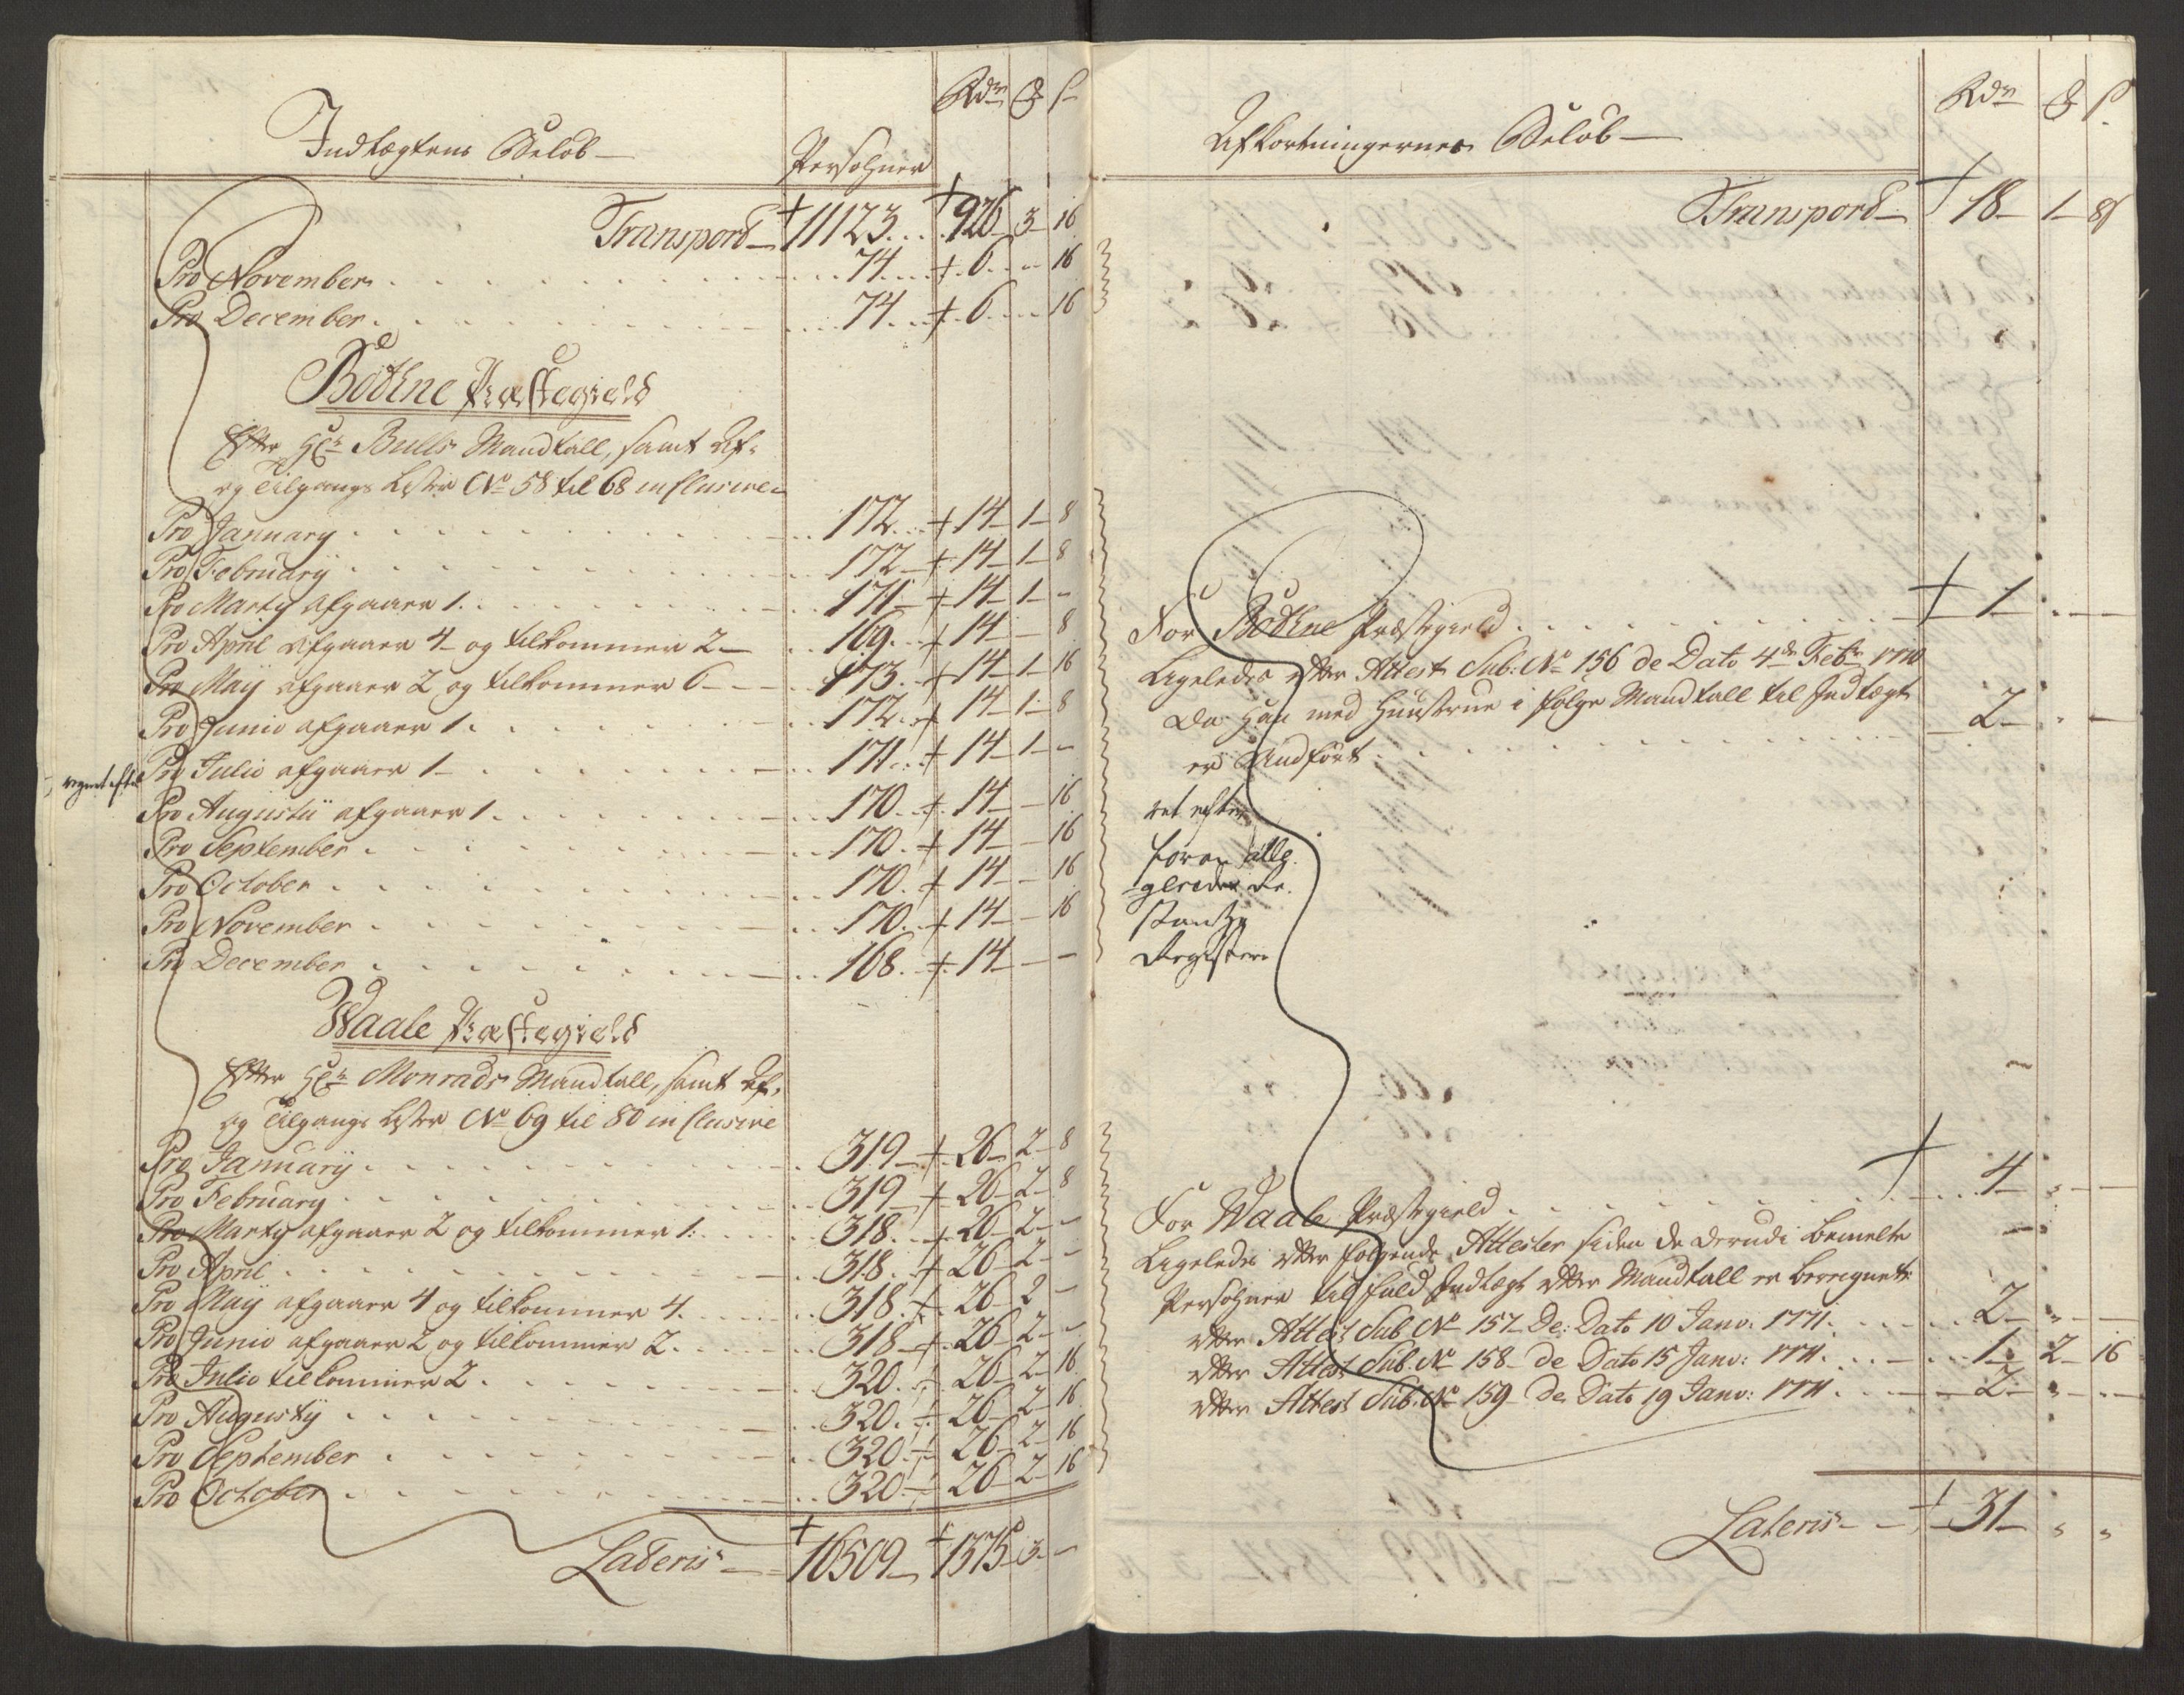 Indtægtens Beløb — Persohner Rdr ß
Transport — 11123 926 3 16
Pro November 74 6 16
Pro December 74 6 16
Bothne Præstegield
Efter Hr. Bulls Mandtall, samt Af-
og Tilgangs Lister No 58 til 68 inclusive
Pro January 172 14 1 8
Pro February 172 14 1 8
Pro Marty afgaaer 1. 171 14 1 –
Pro April afgaaer 4 og tilkommer 2 169 14 – 8
Pro Maÿ afgaaer 2 og tilkommer 6 173 14 1 16
Pro Junio afgaaer 1 172 14 1 8
Pro Julio afgaaer 1 171 14 1 –
Pro Augustii afgaaer 1 170 14 – 16
Pro September 170 14 – 16
Pro October 170 14 – 16
Pro November 170 14 – 16
Pro December 168 14 – –
Waale Præstegield
Efter Hr. Monrads Mandtall, samt Af-
og Tilgangs Lister No 69 til 80 inclusive
Pro Januarÿ 319 26 2 8
Pro February 319 26 2 8
Pro Marty afgaaer 2 og tilkommer 1: 318 26 2 –
Pro April 318 26 2 –
Pro Maÿ afgaaer 4 og tilkommer 4. 318 26 2 –
Pro Junio afgaaer 2 og tilkommer 2. 318 26 2 –
Pro Julio tilkommer 2 320 26 2 16
Pro Augustÿ 320 26 2 16
Pro September 320 26 2 16
Pro October 320 26 2 16
Lateris — 16509 1375 3 –
Afkortningernes Beløb — Rdr ß
Transport — 18 1 8
For Bothne Præstegield 1 – –
Ligeledes efter Attest Sub. No 156 de Dato 4de Febr 1770
da han med Huustrue i følge Mandtall til Indtægt
er Andført 2 – –
For Waale Præstegield 4 – –
Ligeledes efter følgende Attester siden de derudi bemelte
Persohner til fuld Indtægt efter Mandtall er beregnet:
efter Attest Sub No 157 de Dato 10 Janv: 1771. 2 – –
efter Attest Sub. No 158 de Dato 15 Janv: 1771. 1 2 16
efter Attest Sub. No 159 de Dato 19 Janv: 1771. 2 – –
Lateris — 31 – –